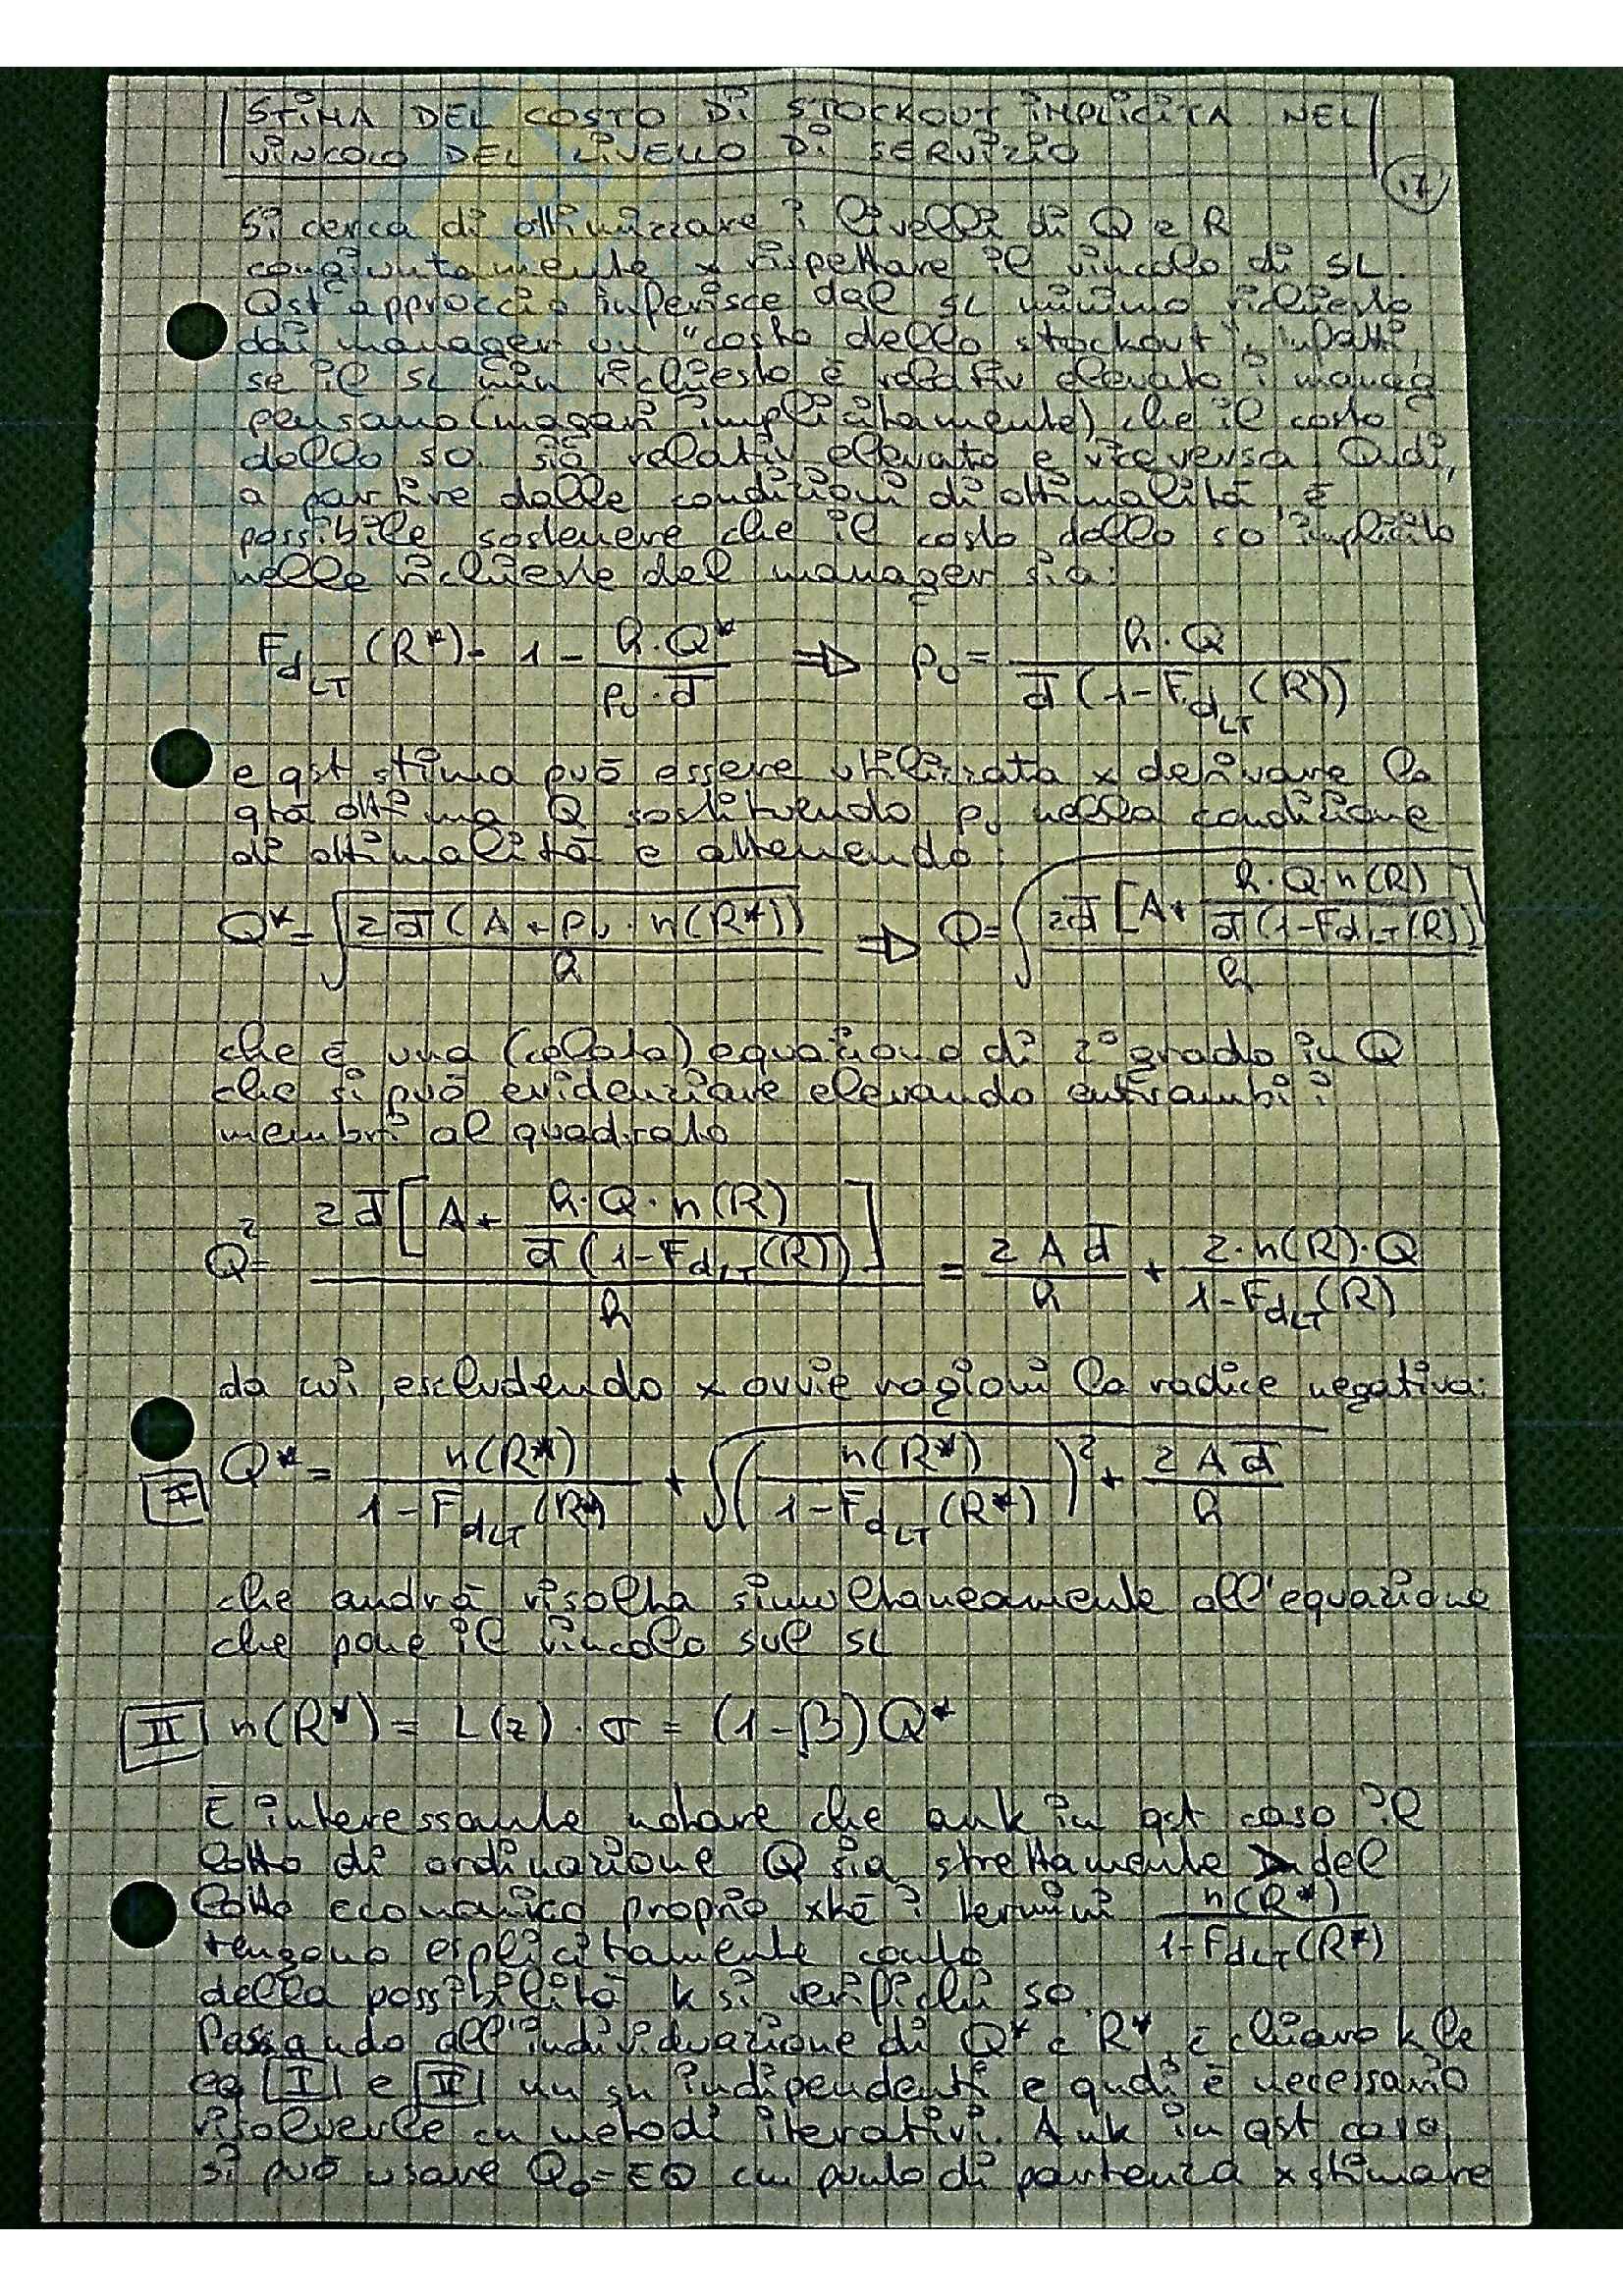 STIMA DEL COSTO DI STOCKOUT IMPLICITA NEL
VINCOLO DEL LIVELLO DI SERVIZIO
17
Si cerca di ottimizzare i livelli di Q e R
congiuntamente x rispettare il vincolo di SL.
Qst approccio inferisce dal SL minimo richiesto
dai manager un "costo dello stockout", infatti,
se il SL min richiesto è relativ elevato i manag
pensano (magari implicitamente) che il costo
dello so. sia relativ elevato e viceversa. Qudi,
a partire dalle condizioni di ottimalità, è
possibile sostenere che il costo dello so implicito
nelle richieste del manager sia:
F_dLT (R*) = 1 - h·Q* / (pu·d̄) ⇒ pu = h·Q / (d̄ (1-F_dLT (R)))
e qst stima può essere utilizzata x derivare la
qtà ottima Q sostituendo pu nella condizione
di ottimalità e ottenendo:
Q* = √(2d̄ (A + pu · n(R*)) / h) ⇒ Q = √(2d̄ [A + h·Q·n(R) / (d̄ (1-F_dLT(R)))] / h)
che è una (celata) equazione di 2° grado in Q
che si può evidenziare elevando entrambi i
membri al quadrato
Q² = 2d̄ [A + h·Q·n(R) / (d̄ (1-F_dLT(R)))] / h = 2Ad̄ / h + 2·n(R)·Q / (1-F_dLT(R))
da cui, escludendo x ovvie ragioni la radice negativa:
I Q* = n(R*) / (1-F_dLT(R*)) + √((n(R*) / (1-F_dLT(R*)))² + 2Ad̄ / h)
che andrà risolta simultaneamente all'equazione
che pone il vincolo sul SL
II n(R*) = L(z) · σ = (1-β)Q*
È interessante notare che ank in qst caso il
lotto di ordinazione Q sia strettamente > del
lotto economico proprio xkè i termini n(R*) / (1-F_dLT(R*))
tengono esplicitamente conto
della possibilità k si verifichi so.
Passando all'individuazione di Q* e R*, è chiaro k le
eq I e II nn sn indipendenti e qudi è necessario
risolverle cn metodi iterativi. Ank in qst caso,
si può usare Q₀=EQ cm punto di partenza x stimare